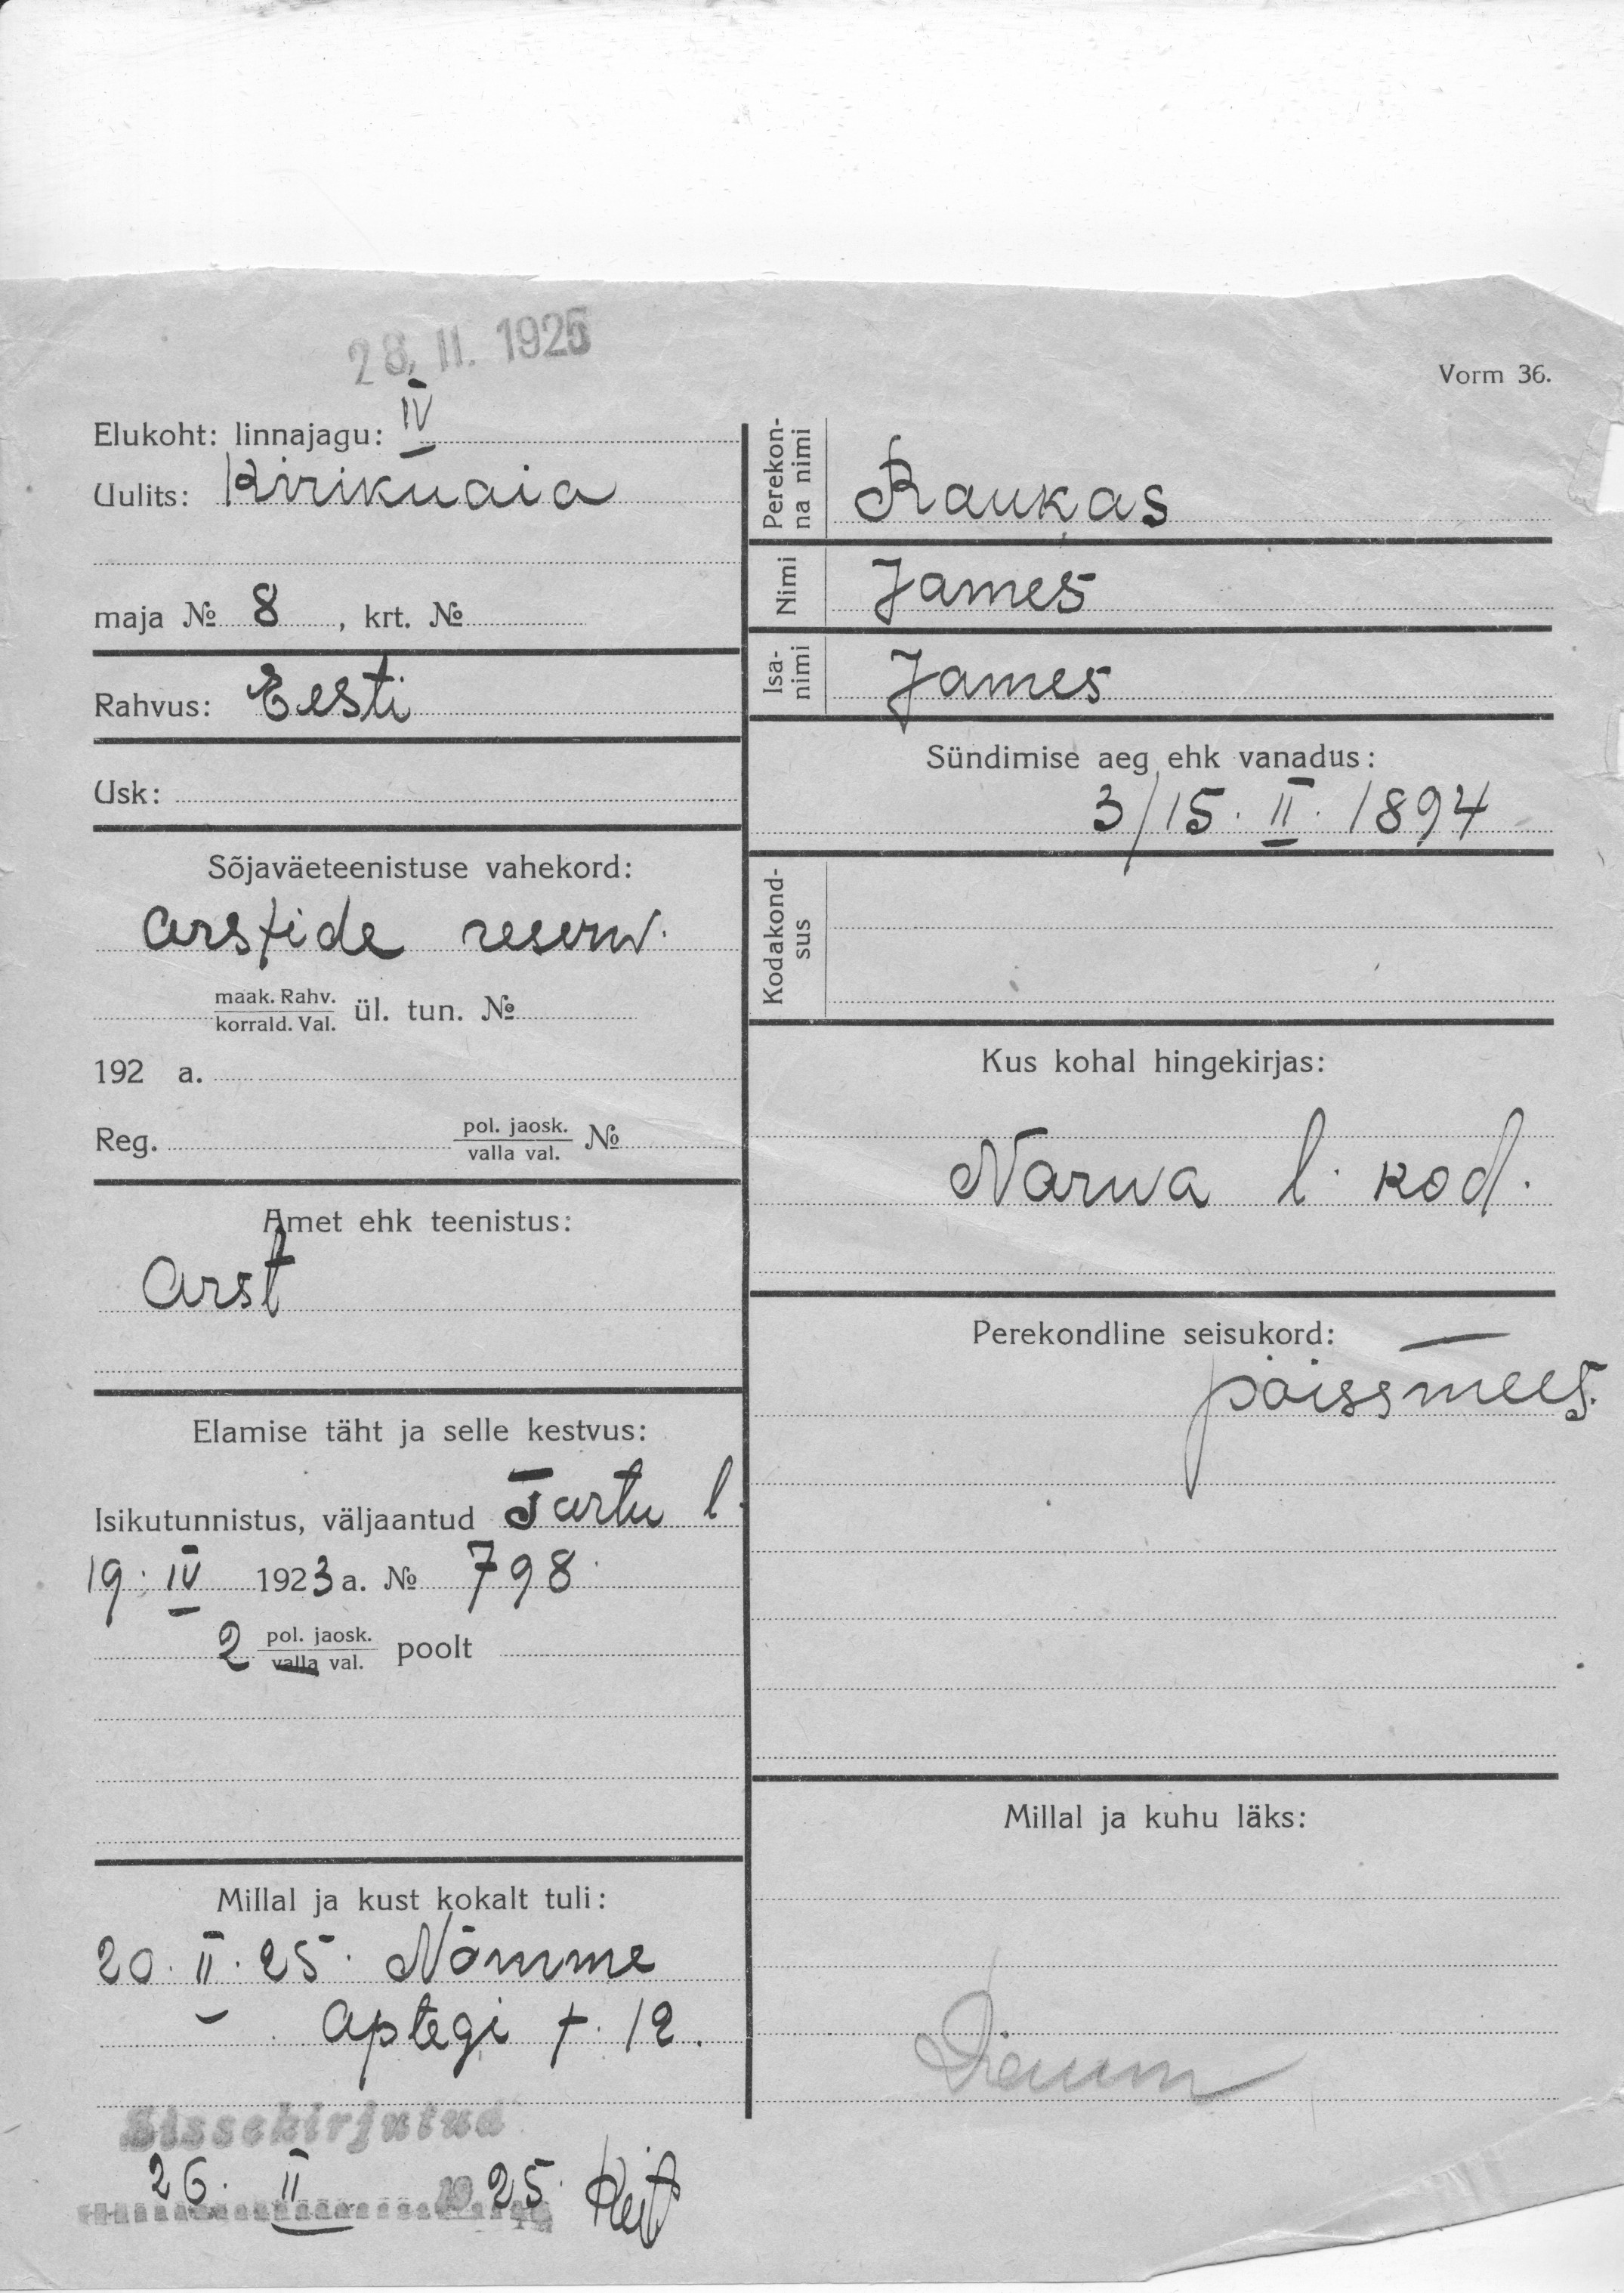 28. II. 1925
Vorm 36.
Elukoht: linnajagu: IV
Uulits: Kirikuaia
maja № 8, krt. №
Rahvus: Eesti
Usk:
Sõjaväeteenistuse vahekord:
arstide reserv.
maak. Rahv.
korrald. Val. ül. tun. №
192 a.
Reg. pol. jaosk.
valla val. №
Amet ehk teenistus:
Arst
Elamise täht ja selle kestvus:
Isikutunnistus, väljaantud Tartu l.
19. IV 1923 a. № 798.
2 pol. jaosk.
valla val. poolt
Millal ja kust kokalt tuli:
20. II. 25. Nõmme
Aptegi t. 12.
Sissekirjutud
26. II 1925.
Perekon-
na nimi Raukas
Nimi James
Isa-
nimi James
Sündimise aeg ehk vanadus:
3/15. II. 1894
Kodakond-
sus
Kus kohal hingekirjas:
Narwa l. kod.
Perekondline seisukord:
poissmees.
Millal ja kuhu läks: